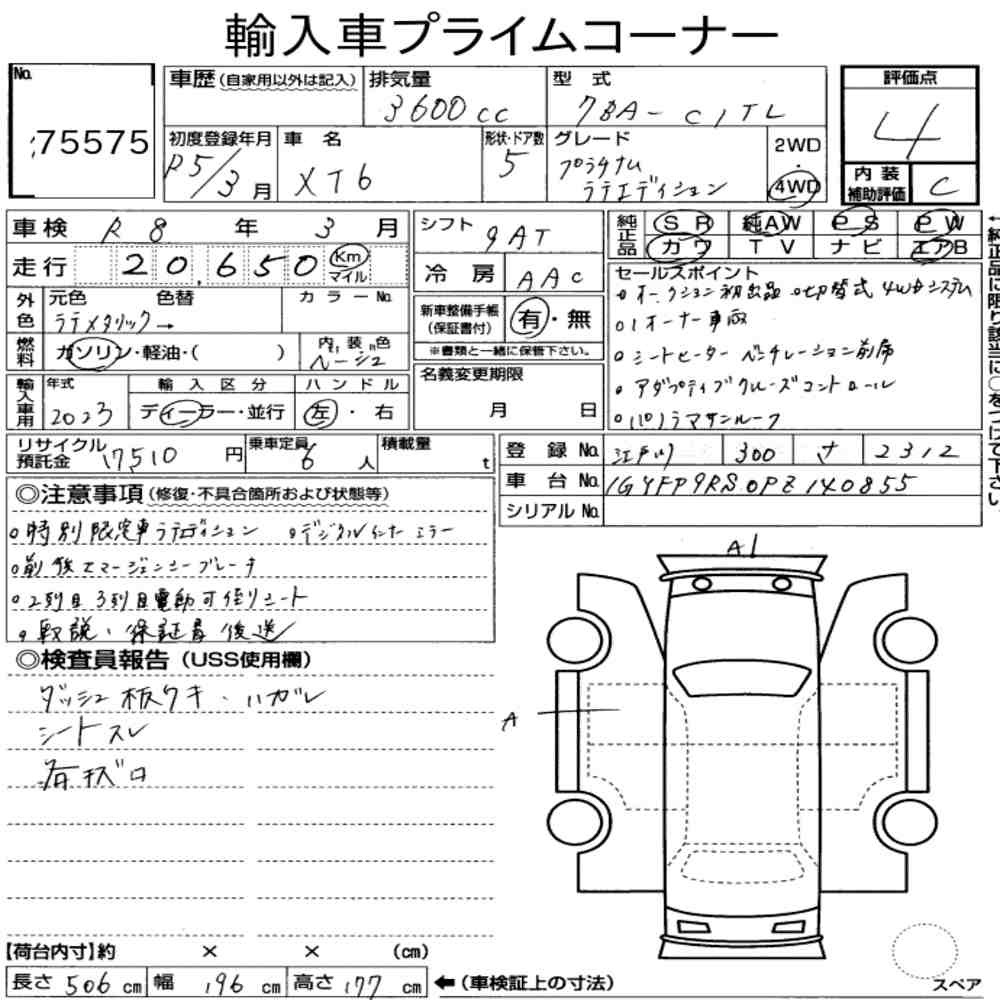 輸入車プライムコーナー
No.
75575
車歴(自家用以外は記入)
排気量
3600cc
型式
7BA-C1TL
評価点
4
初度登録年月
R5/3月
車名
XT6
形状・ドア数
5
グレード
プラチナム
ラテエディション
2WD
・
4WD
内装
補助評価
C
車検 R8年3月
シフト 9AT
純正品
SR 純AW PS PW
カワ TV ナビ エアB
走行 20,650 Km
マイル
冷房 AAC
セールスポイント
外色
元色 色替 カラーNo.
ラテメタリック→
新車整備手帳
(保証書付)
有・無
※書類と一緒に保管下さい。
燃料
ガソリン・軽油・( )
内装色
ベージュ
。オークション初出品 。切替式4WDシステム
。1オーナー車両
。シートヒーター ベンチレーション前席
。アダプティブクルーズコントロール
。パノラマサンルーフ
名義変更期限
月 日
輸入車用
年式
2023
輸入区分
ディーラー・並行
ハンドル
左・右
リサイクル
預託金
17510円
乗車定員
6人
積載量
t
登録No. 江戸川 300 す 2312
車台No. 1GYFP9RS0PZ140855
シリアルNo.
◎注意事項(修復・不具合箇所および状態等)
。特別限定車ラテエディション 。デジタルインナーミラー
。前後エマージェンシーブレーキ
。2列目3列目電動可倒シート
。取説、保証書後送
◎検査員報告(USS使用欄)
ダッシュ板ウキ・ハガレ
シートスレ
A1
A
【荷台内寸】約 × × (cm)
長さ 506 cm 幅 196 cm 高さ 177 cm
←(車検証上の寸法)
スペア
←純正品に限り該当に○をつけて下さい。